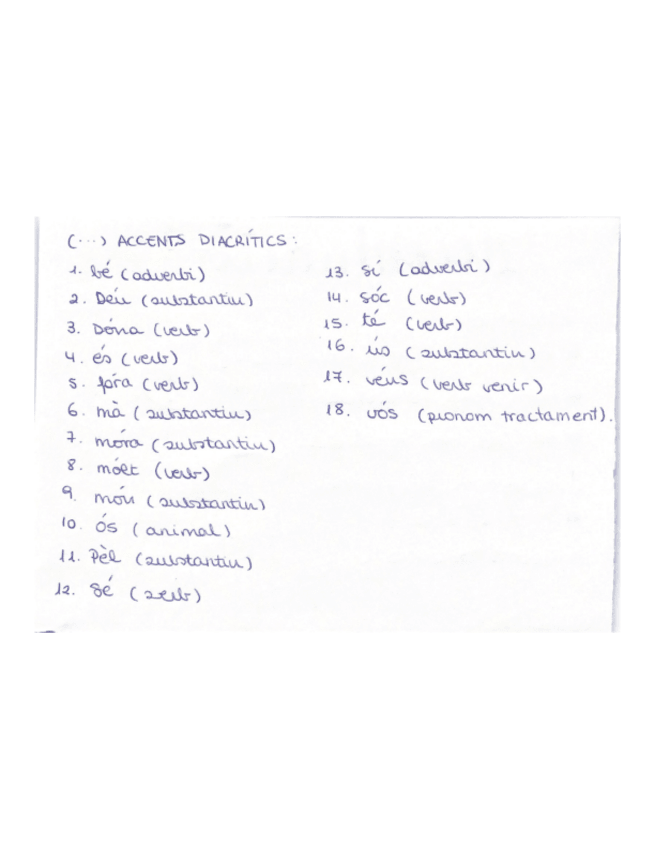 (...) ACCENTS DIACRÍTICS:
1. bé (adverbi)
2. Déu (substantiu)
3. Dóna (verb)
4. és (verb)
5. fóra (verb)
6. mà (substantiu)
7. móra (substantiu)
8. mólt (verb)
9. món (substantiu)
10. ós (animal)
11. Pèl (substantiu)
12. sé (verb)
13. sí (adverbi)
14. sóc (verb)
15. té (verb)
16. ús (substantiu)
17. véus (verb venir)
18. vós (pronom tractament).